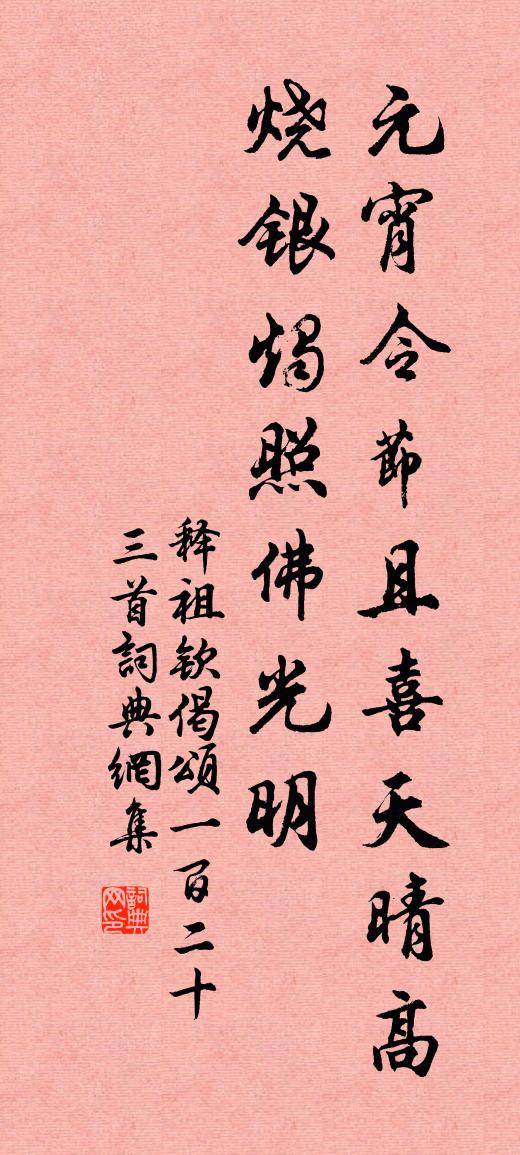 元宵令節且喜天晴高
烧銀燭照佛光明
释祖钦偈頌一百二十
三首詞典網集
詞典
网印